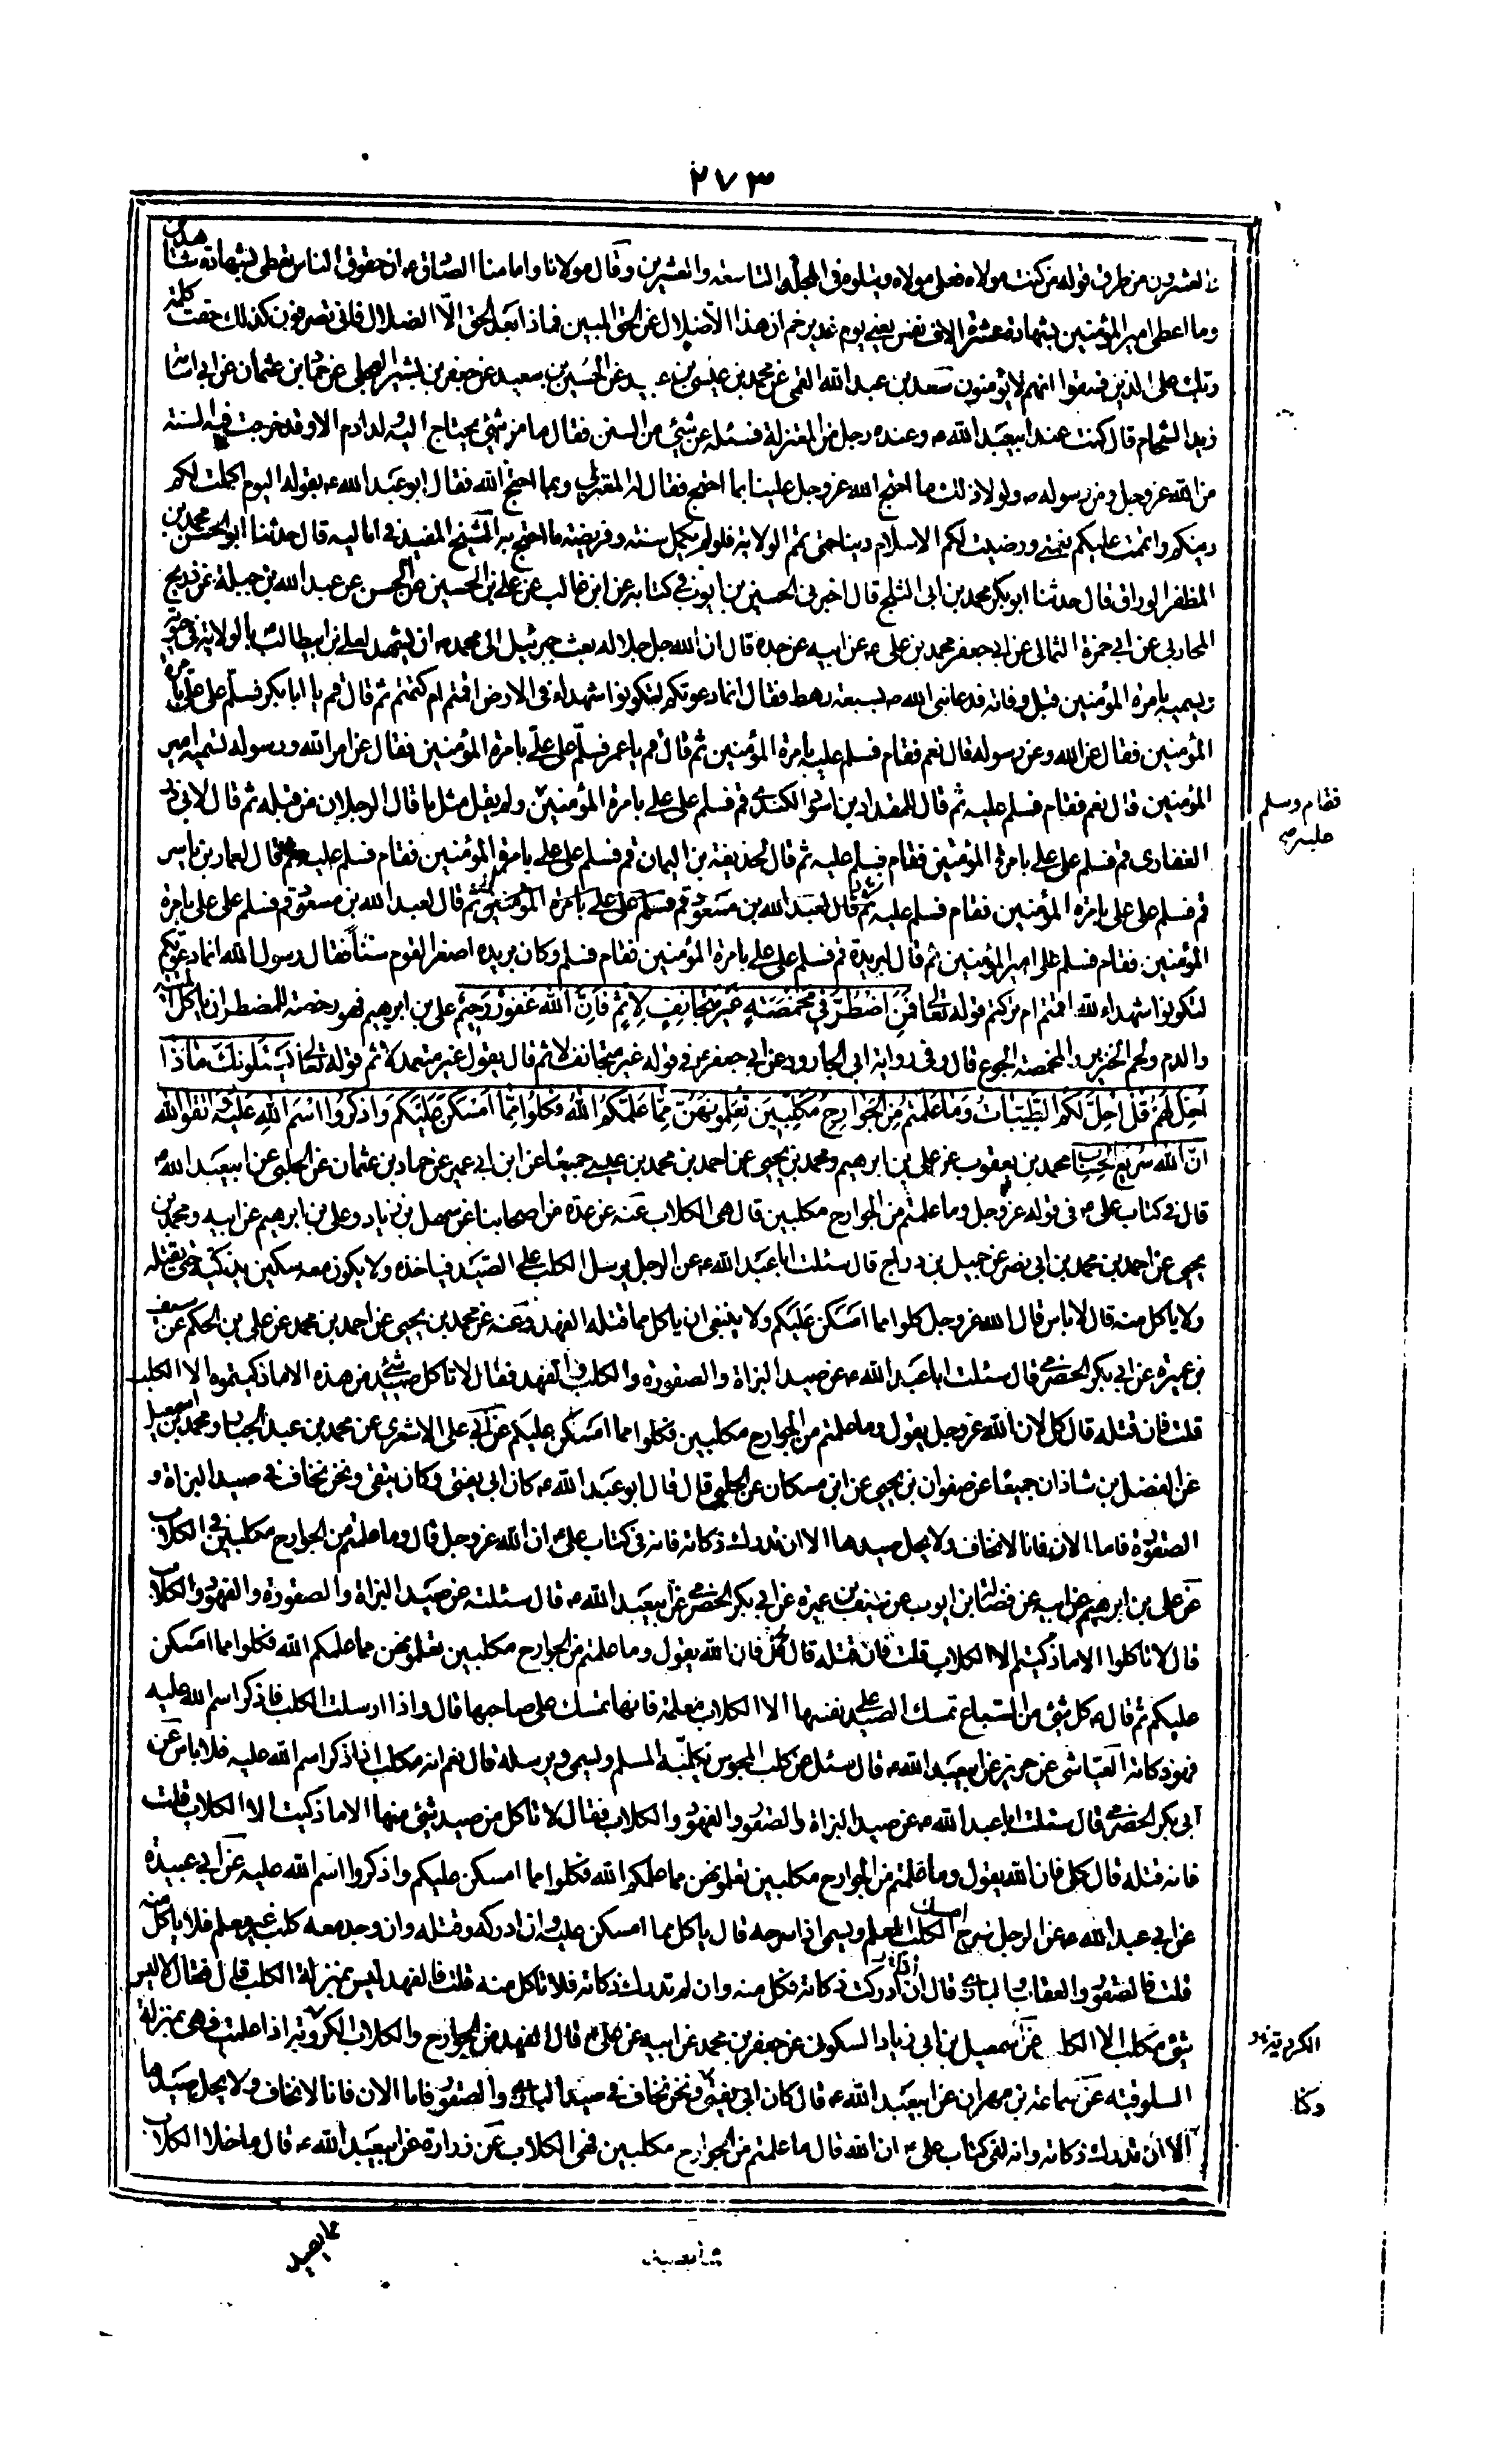 ٢٧٣
والعشرون من طرق قوله من كنت مولاه فعلى مولاه ويتلوه فى المجلد التاسعة والعشرين وقال مولانا وامامنا الصادق ع ان حقوق الناس تعطى بشهادة شاهدين
وما اعطى امير المؤمنين بشهادة عشرة الاف نفس يعنى يوم غدير خم ان هذا الاضلال عن الحق المبين فماذا بعد الحق الا الضلال فانى تصرفون كذلك حقت كلمة
ربك على الذين فسقوا انهم لا يؤمنون سعد بن عبد الله القمى عن محمد بن عيسى بن عبيد عن الحسين بن سعيد عن جعفر بن بشير البجلى عن حماد بن عثمان عن ابى اسامة
زيد الشحام قال كنت عند ابيعبد الله ع وعنده رجل من المغتزلة فسئله عن شئ من السنن فقال ما من شئ يحتاج اليه ولد ادم الا وقد خرجت فيه السنة
من الله عز وجل ومن رسوله ص ولولا ذلك ما احتج الله عز وجل علينا بما احتج فقال له المغتزلى وبما احتج الله فقال ابو عبد الله ع بقوله اليوم اكملت لكم
دينكم واتممت عليكم نعمتى ورضيت لكم الاسلام دينا حتى تمم الولاية فلو لم يكمل سنته وفريضته ما احتج به الشيخ المفيد فى اماليه قال حدثنا ابو الحسن محمد بن
المظفر الوراق قال حدثنا ابو بكر محمد بن ابى الثلج قال اخبرنى الحسين بن ايوب فى كتابه عن ابن غالب عن على بن الحسين عن الحسن عن عبد الله بن جبلة عن ذريح
المحاربى عن ابى حمزة الثمالى عن ابى جعفر محمد بن على ع عن ابيه عن جده قال ان الله جل جلاله بعث جبرئيل الى محمد ص ان يشهد لعلى بن ابيطالب بالولاية فى حيوته
ويسميه بامرة المؤمنين قبل وفاته فدعا نبى الله ص بسبعة رهط فقال انما دعوتكم لتكونوا شهداء فى الارض اقمتم ام كتمتم ثم قال قم يا ابا بكر فسلم على على بامرة
المؤمنين فقال عن الله وعن رسوله قال نعم فقام فسلم عليه بامرة المؤمنين ثم قال قم يا عمر فسلم على على بامرة المؤمنين فقال عن امر الله ورسوله نسميه امير
المؤمنين قال نعم فقام فسلم عليه ثم قال للمقداد بن اسود الكندى قم فسلم على على بامرة المؤمنين ولم يقل مثل ما قال الرجلان من قبله ثم قال لابى ذر
فقام وسلم
عليه ص
الغفارى قم فسلم على على بامرة المؤمنين فقام فسلم عليه ثم قال لحذيفة بن اليمان قم فسلم على على بامرة المؤمنين فقام فسلم عليه ثم قال لعمار بن ياسر
قم فسلم على على بامرة المؤمنين فقام فسلم عليه ثم قال لعبد الله بن مسعود قم فسلم على على بامرة المؤمنين ثم قال لعبد الله بن مسعود قم فسلم على على بامرة
المؤمنين فقام فسلم على امير المؤمنين ثم قال لبريدة قم فسلم على على بامرة المؤمنين فقام فسلم وكان بريدة اصغر القوم سنا فقال رسول الله انما دعوتكم
لتكونوا شهداء لله اقمتم ام تركتم قوله تعالى فَمَنِ اضْطُرَّ فِي مَخْمَصَةٍ غَيْرَ مُتَجَانِفٍ لِاِثْمٍ فَاِنَّ اللهَ غَفُورٌ رَحِيمٌ على بن ابرهيم فهو رخصة للمضطر ان ياكل الميتة
والدم ولحم الخنزير والمخمصة الجوع قال وفى رواية ابى الجارود عن ابى جعفر ع فى قوله غير متجانف لاثم قال يقول غير متعمد لاثم قوله تعالى يَسْئَلُونَكَ مَاذَا
اُحِلَّ لَهُمْ قُلْ اُحِلَّ لَكُمُ الطَّيِّبَاتُ وَمَا عَلَّمْتُمْ مِنَ الْجَوَارِحِ مُكَلِّبِينَ تُعَلِّمُونَهُنَّ مِمَّا عَلَّمَكُمُ اللهُ فَكُلُوا مِمَّا اَمْسَكْنَ عَلَيْكُمْ وَاذْكُرُوا اسْمَ اللهِ عَلَيْهِ وَاتَّقُوا اللهَ
اِنَّ اللهَ سَرِيعُ الْحِسَابِ محمد بن يعقوب عن على بن ابرهيم ومحمد بن يحيى عن احمد بن محمد بن عيسى جميعا عن ابن ابى عمير عن حماد بن عثمان عن الحلبى عن ابيعبد الله ع
قال فى كتاب على ع فى قوله عز وجل وما علمتم من الجوارح مكلبين قال هى الكلاب عنه عن عدة من اصحابنا عن سهل بن زياد وعلى بن ابرهيم عن ابيه ومحمد بن
يحيى عن احمد بن محمد بن ابى نصر عن جميل بن دراج قال سئلت ابا عبد الله ع عن الرجل يرسل الكلب على الصيد فياخذه ولا يكون معه سكين يذكيه حتى يقتله
ولا ياكل منه قال لا باس قال الله عز وجل كلوا مما امسكن عليكم ولا ينبغى ان ياكل مما قتله الفهد وعنه عن محمد بن يحيى عن احمد بن محمد عن على بن الحكم عن سيف
بن عميرة عن ابى بكر الحضرمى قال سئلت ابا عبد الله ع عن صيد البزاة والصقورة والكلب والفهد فقال لا تاكل صيد شئ من هذه الا ما ذكيتموه الا الكلب
قلت فان قتله قال كل لان الله عز وجل يقول وما علمتم من الجوارح مكلبين فكلوا مما امسكن عليكم عن ابى على الاشعرى عن محمد بن عبد الجبار ومحمد بن اسمعيل
عن الفضل بن شاذان جميعا عن صفوان بن يحيى عن ابن مسكان عن الحلبى قال قال ابو عبد الله ع كان ابى يفتى وكان يتقى ونحن نخاف فى صيد البزاة و
الصقورة فاما الان فانا لا نخاف ولا يحل صيدها الا ان تدرك ذكاته فانه فى كتاب على ع ان الله عز وجل قال وما علمتم من الجوارح مكلبين فى الكلاب
عن على بن ابرهيم عن ابيه عن فضالة بن ايوب عن سيف بن عميرة عن ابى بكر الحضرمى عن ابيعبد الله ع قال سئلته عن صيد البزاة والصقورة والفهود والكلاب
قال لا تاكلوا الا ما ذكيتم الا الكلاب قلت فان قتله قال كل فان الله يقول وما علمتم من الجوارح مكلبين تعلمونهن مما علمكم الله فكلوا مما امسكن
عليكم ثم قال ع كل شئ من السباع تمسك الصيد على نفسها الا الكلاب معلمة فانها تمسك على صاحبها قال واذا ارسلت الكلب فاذكر اسم الله عليه
فهو ذكاته العياشى عن حريز عن ابيعبد الله ع قال سئل عن كلب المجوس يكلبه المسلم ويسمى ويرسله قال نعم انه مكلب اذا ذكر اسم الله عليه فلا باس عن
ابى بكر الحضرمى قال سئلت ابا عبد الله ع عن صيد البزاة والصقور والفهود والكلاب فقال لا تاكل من صيد شئ منها الا ما ذكيت الا الكلاب قلت
فانه قتله قال كل فان الله يقول وما علمتم من الجوارح مكلبين تعلمونهن مما علمكم الله فكلوا مما امسكن عليكم واذكروا اسم الله عليه عن ابى عبيدة
عن ابى عبد الله ع عن الرجل سرح الكلب المعلم ويسمى اذا سرحه قال ياكل مما امسكن عليه وان ادركه وقتله وان وجد معه كلب غير معلم فلا ياكل منه
قلت فالصقور والعقاب والبازى قال ان ادركت ذكاته فكل منه وان لم تدرك ذكاته فلا تاكل منه قلت فالفهد ليس بمنزلة الكلب قال فقال لا ليس
شئ مكلب الا الكلب عن اسمعيل بن ابى زياد السكونى عن جعفر بن محمد عن ابيه عن على ع قال الفهد من الجوارح والكلاب الكروية اذا علمت فهى بمنزلة
السلوقية عن سماعة بن مهران عن ابيعبد الله ع قال كان ابى يفتى ونحن نخاف فى صيد البازى والصقور فاما الان فانا لا نخاف ولا يحل صيدها
وكنا
الا ان تدرك ذكاته وانه لفى كتاب على ع ان الله قال ما علمتم من الجوارح مكلبين فهى الكلاب عن زرارة عن ابيعبد الله ع قال ما خلا الكلاب